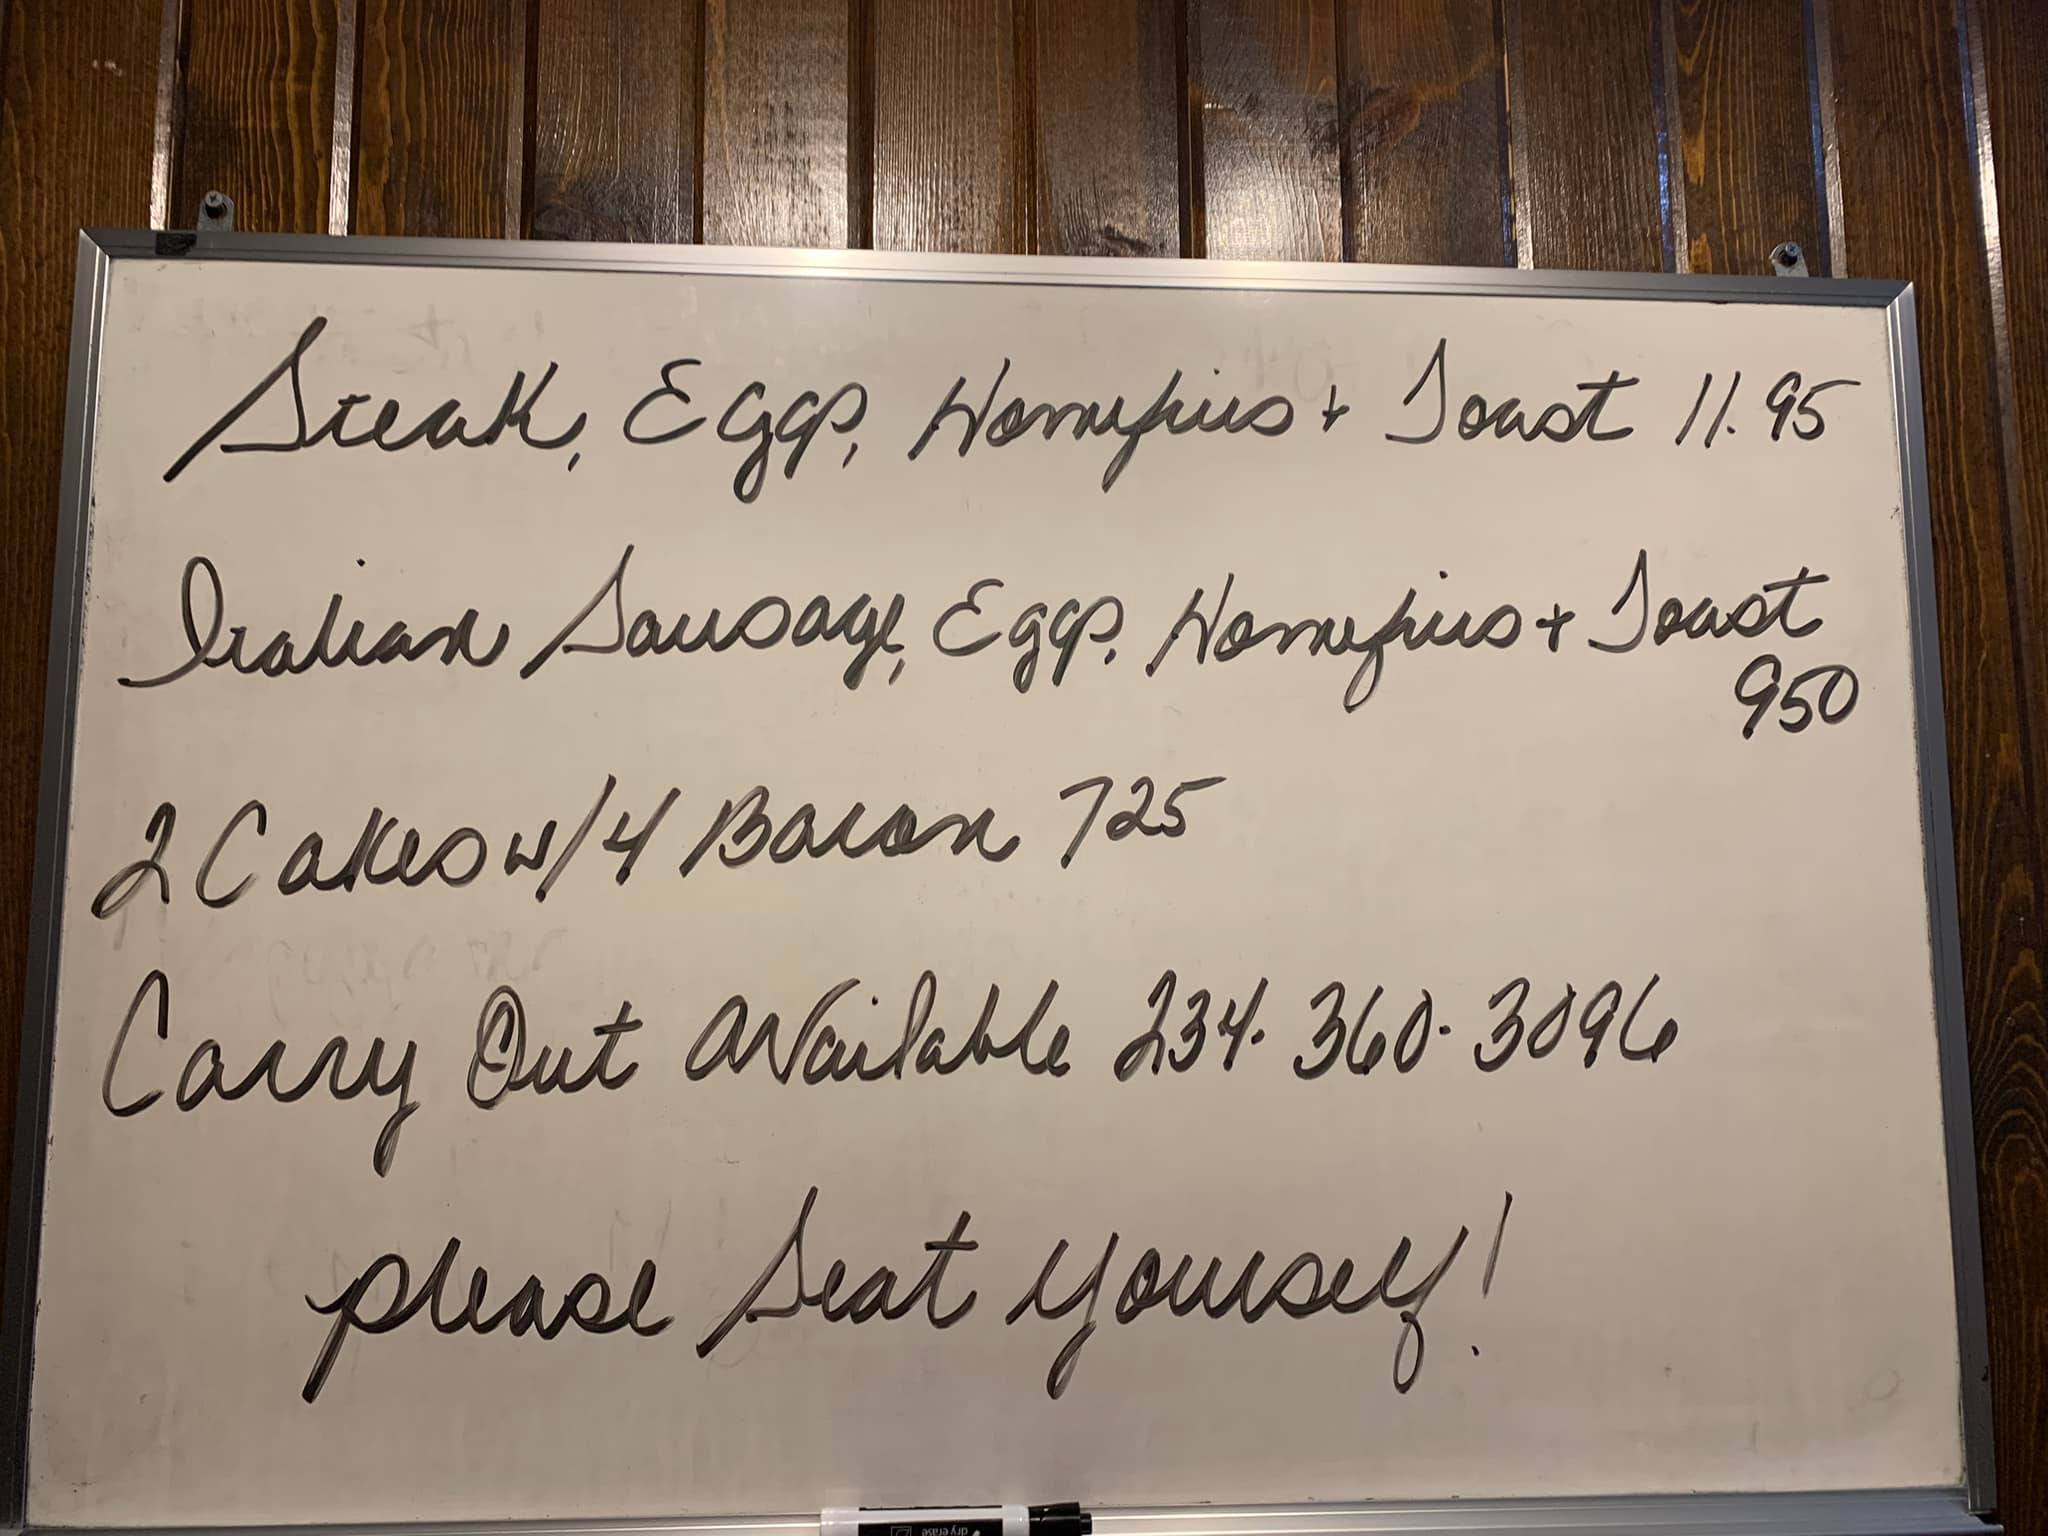 Steak, Eggs, Homefries + Toast 11.95
Italian Sausage, Eggs, Homefries + Toast
950
2 Cakes w/4 Bacon 725
Carry Out Available 234. 360. 3096
please Seat yourself!
dry erase